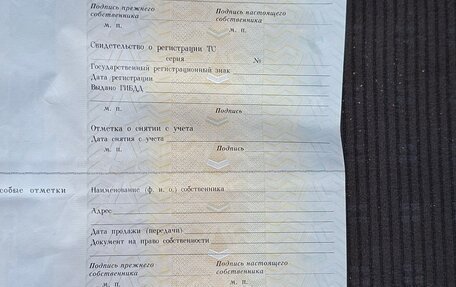 Подпись прежнего Подпись настоящего
собственника собственника
м. п. м. п.
Свидетельство о регистрации ТС
серия №
Государственный регистрационный знак
Дата регистрации
Выдано ГИБДД
м. п. Подпись
Отметка о снятии с учета
Дата снятия с учета
м. п. Подпись
собые отметки Наименование (ф. и. о.) собственника
Адрес
Дата продажи (передачи)
Документ на право собственности
Подпись прежнего Подпись настоящего
собственника собственника
м. п. м. п.